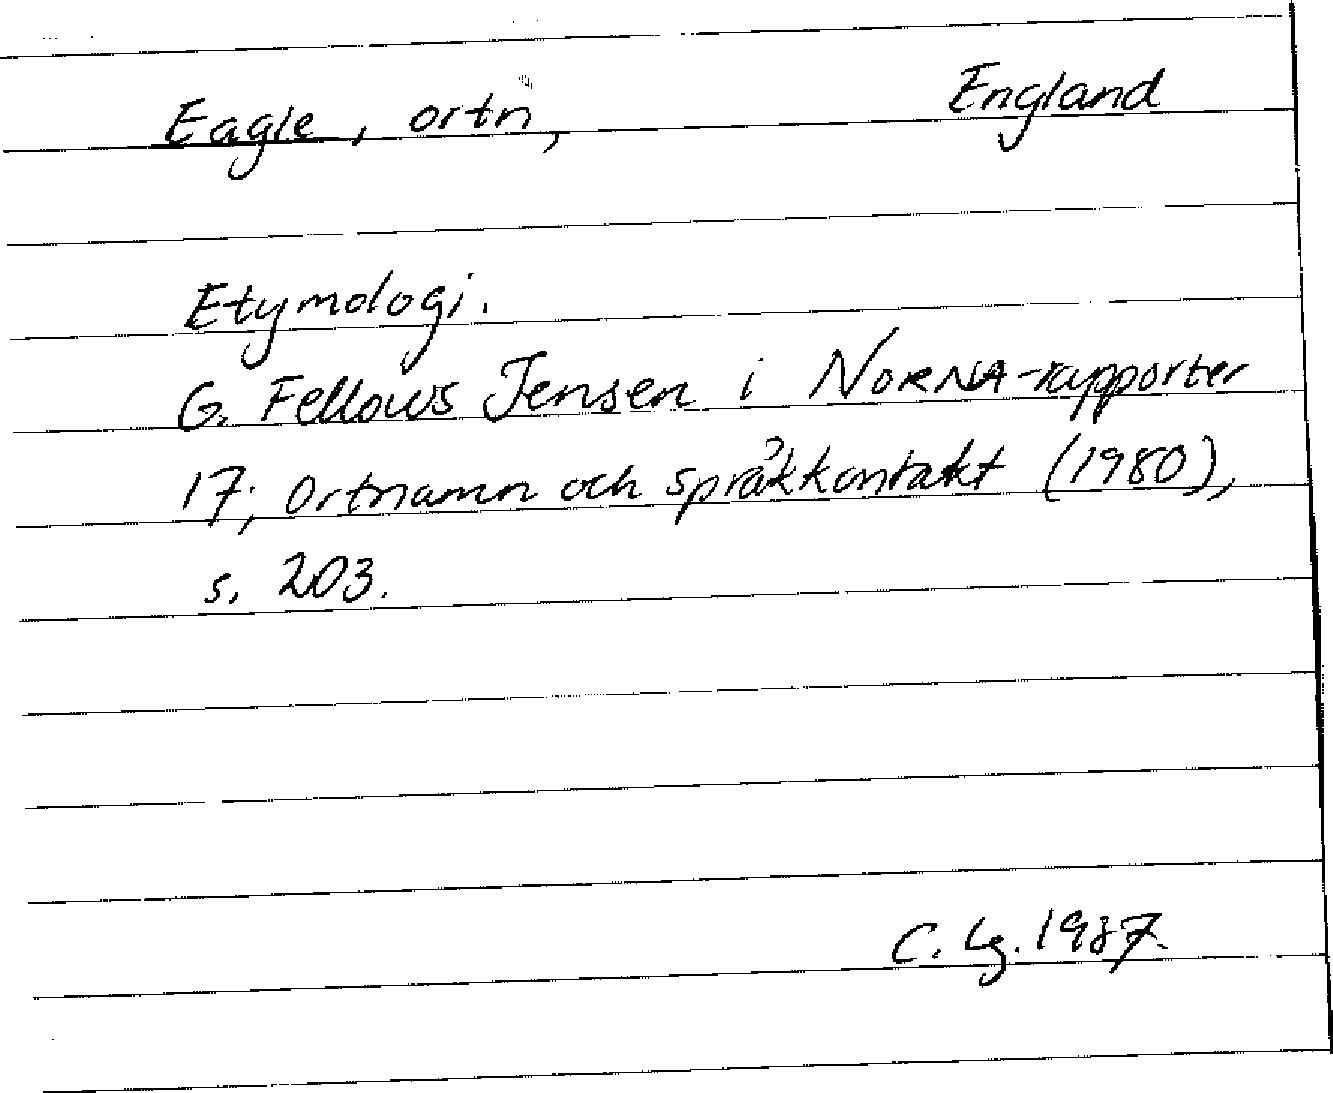 Eagle, ortn, England
Etymologi.
G. Fellows Jensen i NORNA-rapporter
17; Ortnamn och språkkontakt (1980),
s. 203.
C. Lg. 1987.